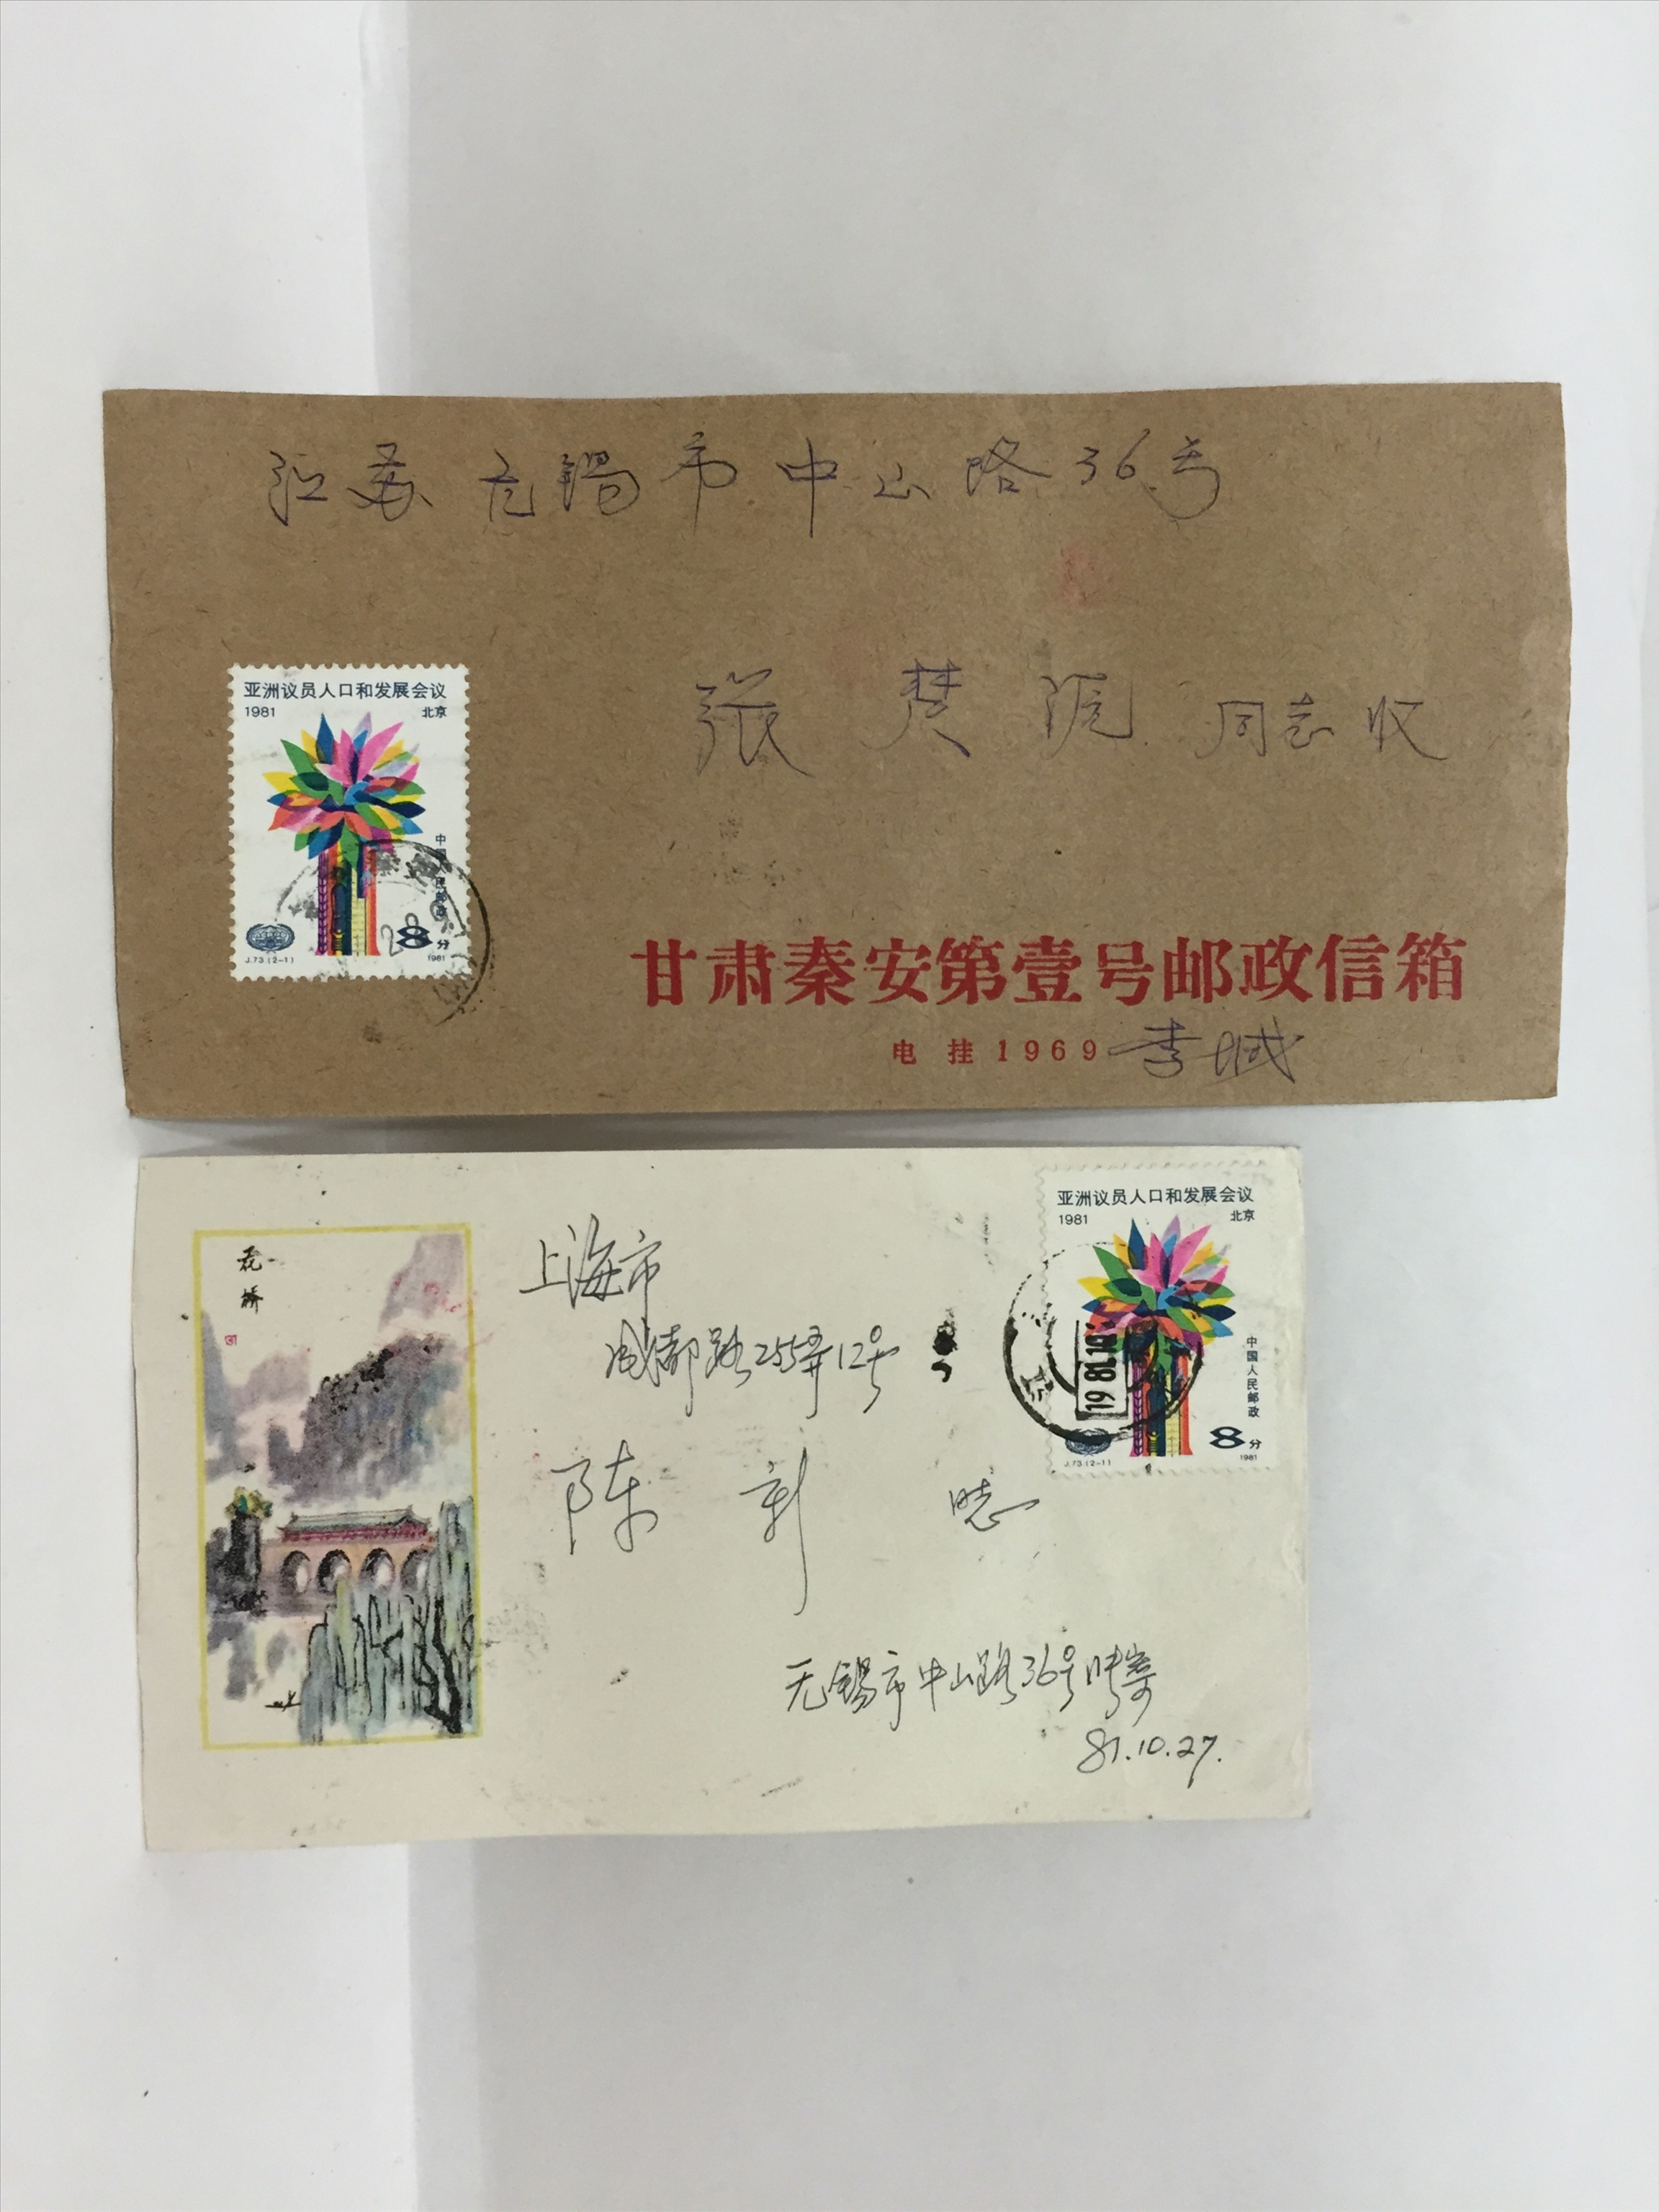 江苏无锡市中山路36号
亚洲议员人口和发展会议
1981 北京
张楚琬同志收
中国人民邮政
8分
J.73 (2-1) 1981
甘肃秦安第壹号邮政信箱
电挂1969 李城
花桥
上海市
成都路255弄12号
亚洲议员人口和发展会议
1981 北京
中国人民邮政
1981.10
8分
J.73 (2-1) 1981
陈新
无锡市中山路36号
81.10.27.